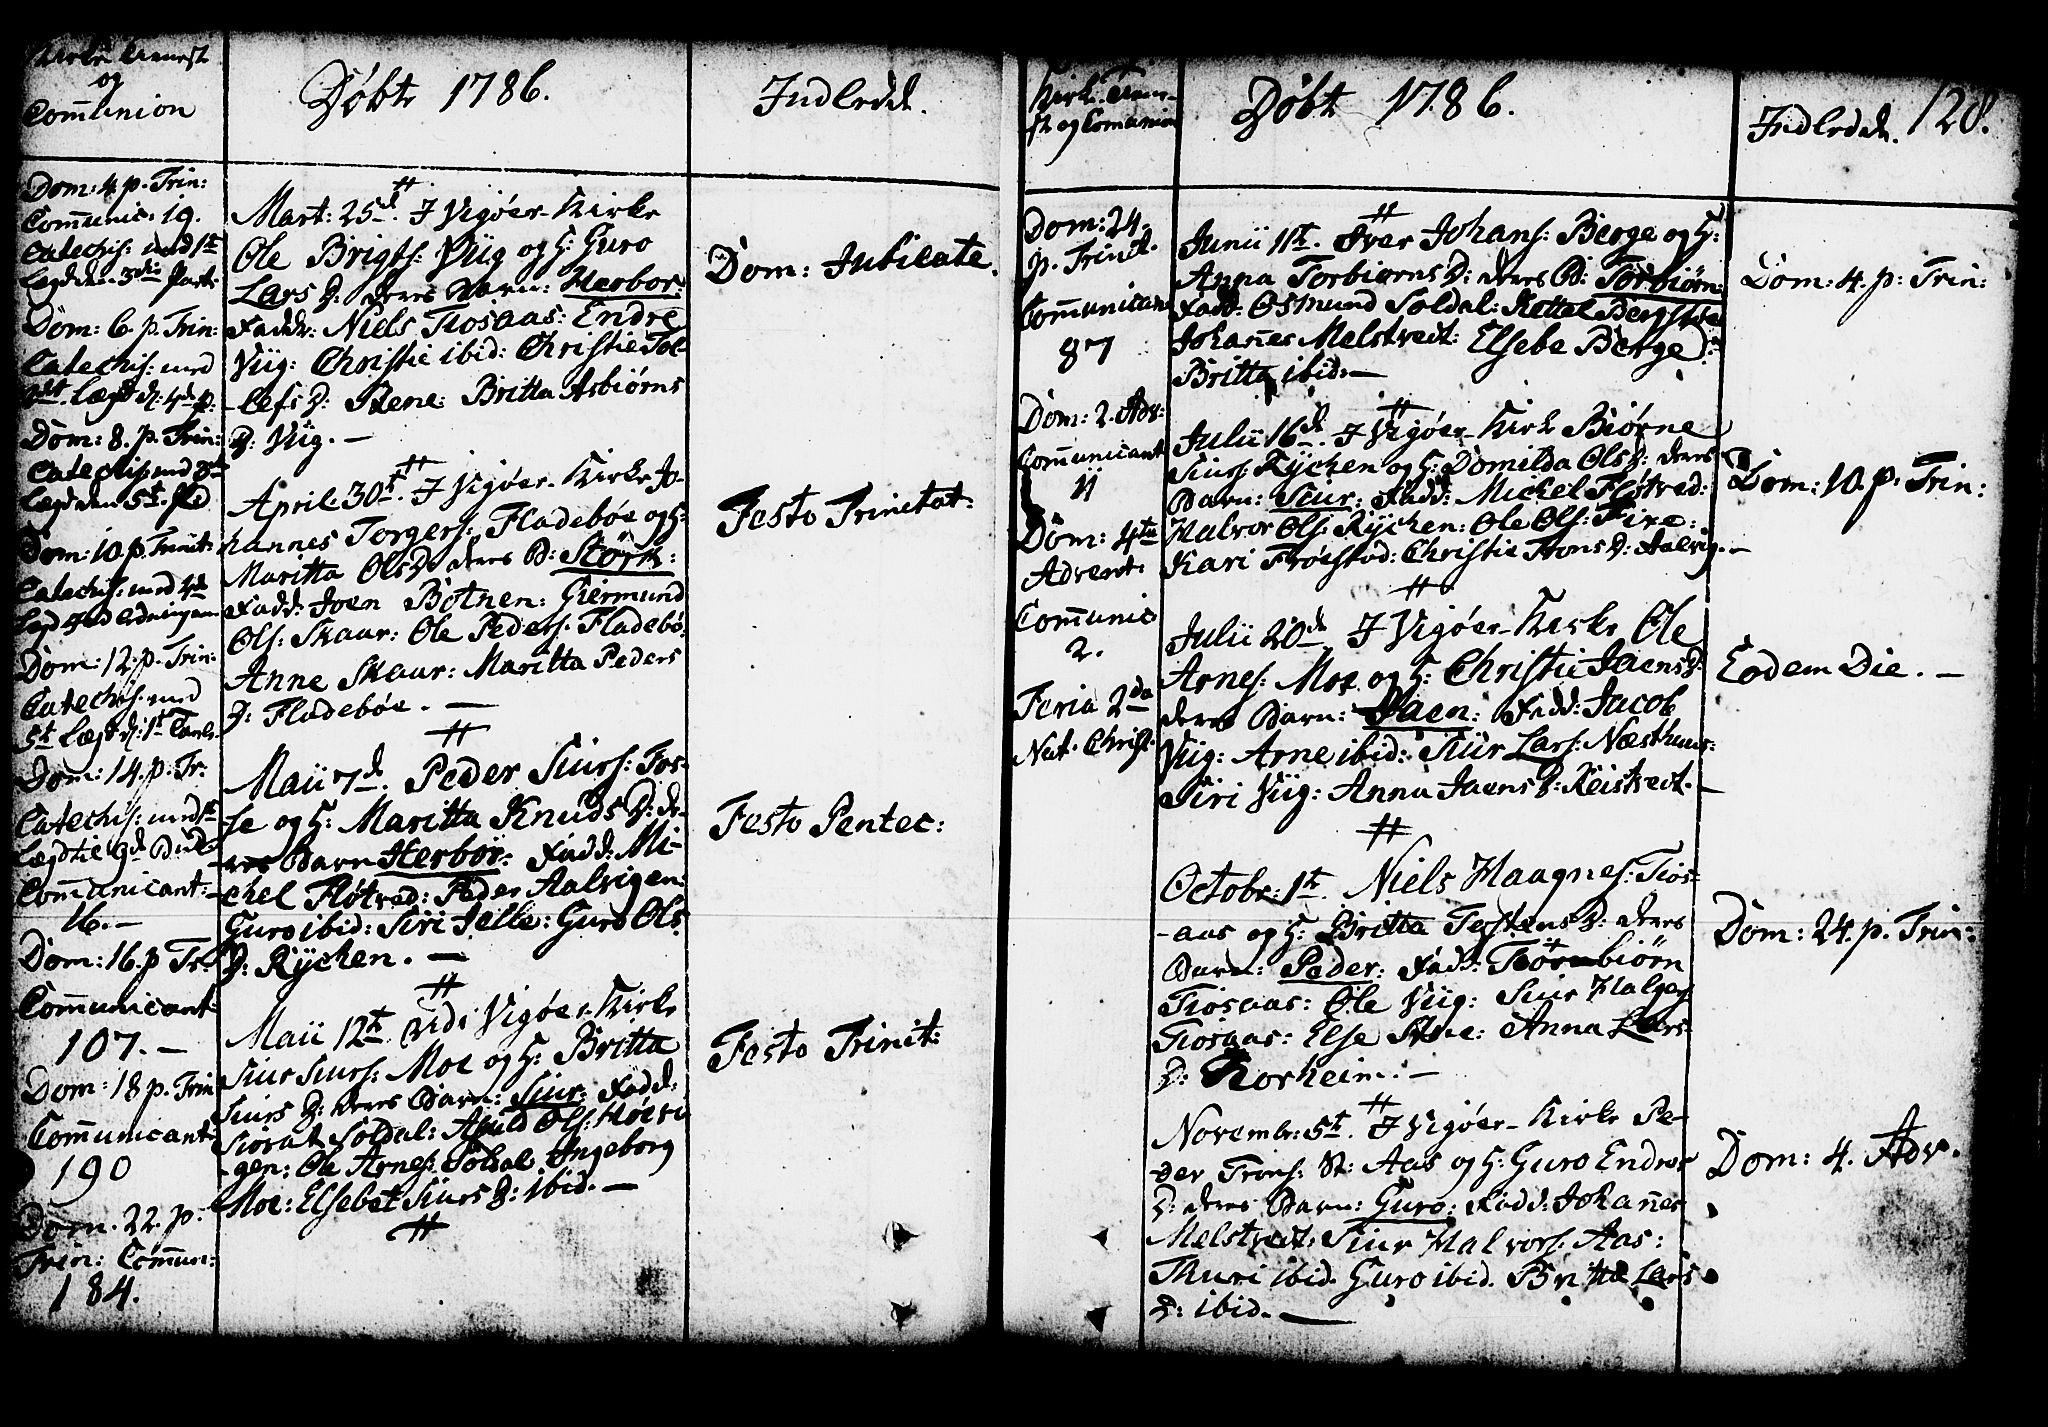 Kirke Tienest
og
Com̄union
Dom: 4. p. Trin:
Com̄unic: 19.
Catechis: med 1st
Lægd den 3die Part
Dom: 6. p. Trin:
Catechis: med
Lægd d: 4de p:
Dom: 8. p. Trin:
Catechis: med 3die
Lægd den 5t. P
Dom: 10. p. Trinit:
Catechis: med 4de
Lægd
Dom: 12. p. Trin:
Catechis: med
5t Lægd d: 1st
Dom: 14. p. Tr:
Catechis: med 1st
Lægd til 9de Bud
Com̄unicant:
16. —
Dom: 16. p Tr:
Com̄unicant
107. —
Dom: 18 p. Trin
Com̄unicant
190
Dom. 22. p.
Trin: Com̄un:
184.
Døbte 1786.
Mart: 25d. I Vigøer-Kirke
Ole Brigts: Viig og H: Guro
Lars D: deres Barn: Herbor:
Fadder: Niels Tiosaas: Endre
Viig: Christie ibid: Christie Tol-
-lefs D: Stene: Britta Asbiørns
D: Viig. —
April 30t. I Vigøer-Kirke Jo-
hannes Torgers: Fladebøe og H:
Maritta Ols D: deres B: Størk:
Fadd: Joen Botnen: Giermund
Ols: Skaar: Ole Peders: Fladebø:
Anne Skaar: Maritta Peders
D: Fladebøe. —
Maii 7d. Peder Siurs: Fos-
se og H: Maritta Knuds D: de-
-res Barn Herbor: Fadd: Mi-
chel Fløtved: Peder Aalvigen:
Guro ibid: Siri Jelle: Guro Ols
D: Rychen. —
Maii 12t. Vigøer-Kirke
Siur Siurs: Moe og H: Britta
Siurs D: deres Barn: Siur: Fadd:
Soldal: Ols:
-gen: Ole Arnes: Soldal Ingeborg
Moe: Elsebet Siurs D: ibid. —
Indledde.
Dom: Jubilate.
Festo Trinitat:
Festo Pentec:
Festo Trinit:
Kirk. Tiene-
st og Com̄union
Dom: 24.
p. Trinit.
Com̄unicant
87
Dom: 2. Adv:
Com̄unicant
11
Dom: 4de
Advent.
Com̄unic
2.
Feria 2da
Nat. Christ.
Døbte 1786.
Junii 11t. Iver Johans: Berge og H:
Anna Torbiørns D: deres B: Torbiørn:
Fadd: Osmund Soldal: Kettel
Johan̄es Melstvedt: Elsebe Berge:
Britta ibid: —
Julii 16d. I Vigøer-Kirke Biørne
Siurs: Rychen og H: Domilda Ols D: deres
Barn: Siur: Fadd: Michel Fløtved:
Halvor Ols: Rychen: Ole Ols: Fixe:
Kari Frøestad: Christie Trons D: Aalvig. —
Julii 20d. I Vigøer-Kirke Ole
Arnes: Moe og H: Christie Jaens D:
deres Barn: Jaen: Fadd: Jacob
Viig: Arne ibid: Siur Lars: Næsthuus:
Siri Viig: Anna Jaens D: Reistvedt. —
Octobr: 1t. Niels Haagnes: Tios-
-aas og H: Britta Tostens D: deres
Barn: Peder: Fadd: Torbiørn
Tiosaas: Ole Viig: Siur
Tiosaas: Else Stene: Anna Lars
D: Norheim. —
Novembr: 5t. I Vigøer-Kirke Pe-
der Trons: St: Aas og H: Guro Endres
D: deres Barn: Guro: Fadd: Johan̄es
Melstvedt: Siur Halvors: Aas:
Thuri ibid. Guro ibid. Britta Lars
D: ibid. —
Indledde. 128.
Dom: 4. p. Trin:
Dom: 10. p. Trin:
Eodem Die. —
Dom: 24. p. Trin:
Dom: 4. Adv.